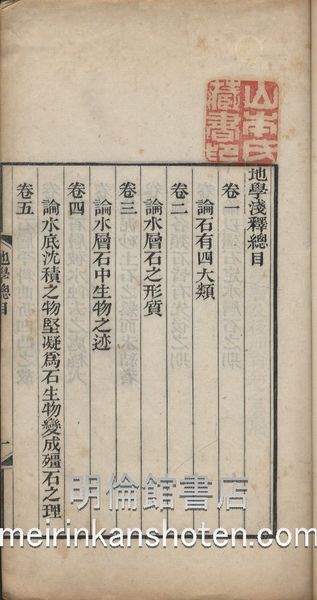 地學淺釋總目
卷一
論石有四大類
卷二
論水層石之形質
卷三
論水層石中生物之迹
卷四
論水底沈積之物堅凝爲石生物變成殭石之理
卷五
地學總目
一
山本氏
藏書印
明倫館書店
meirinkanshoten.com